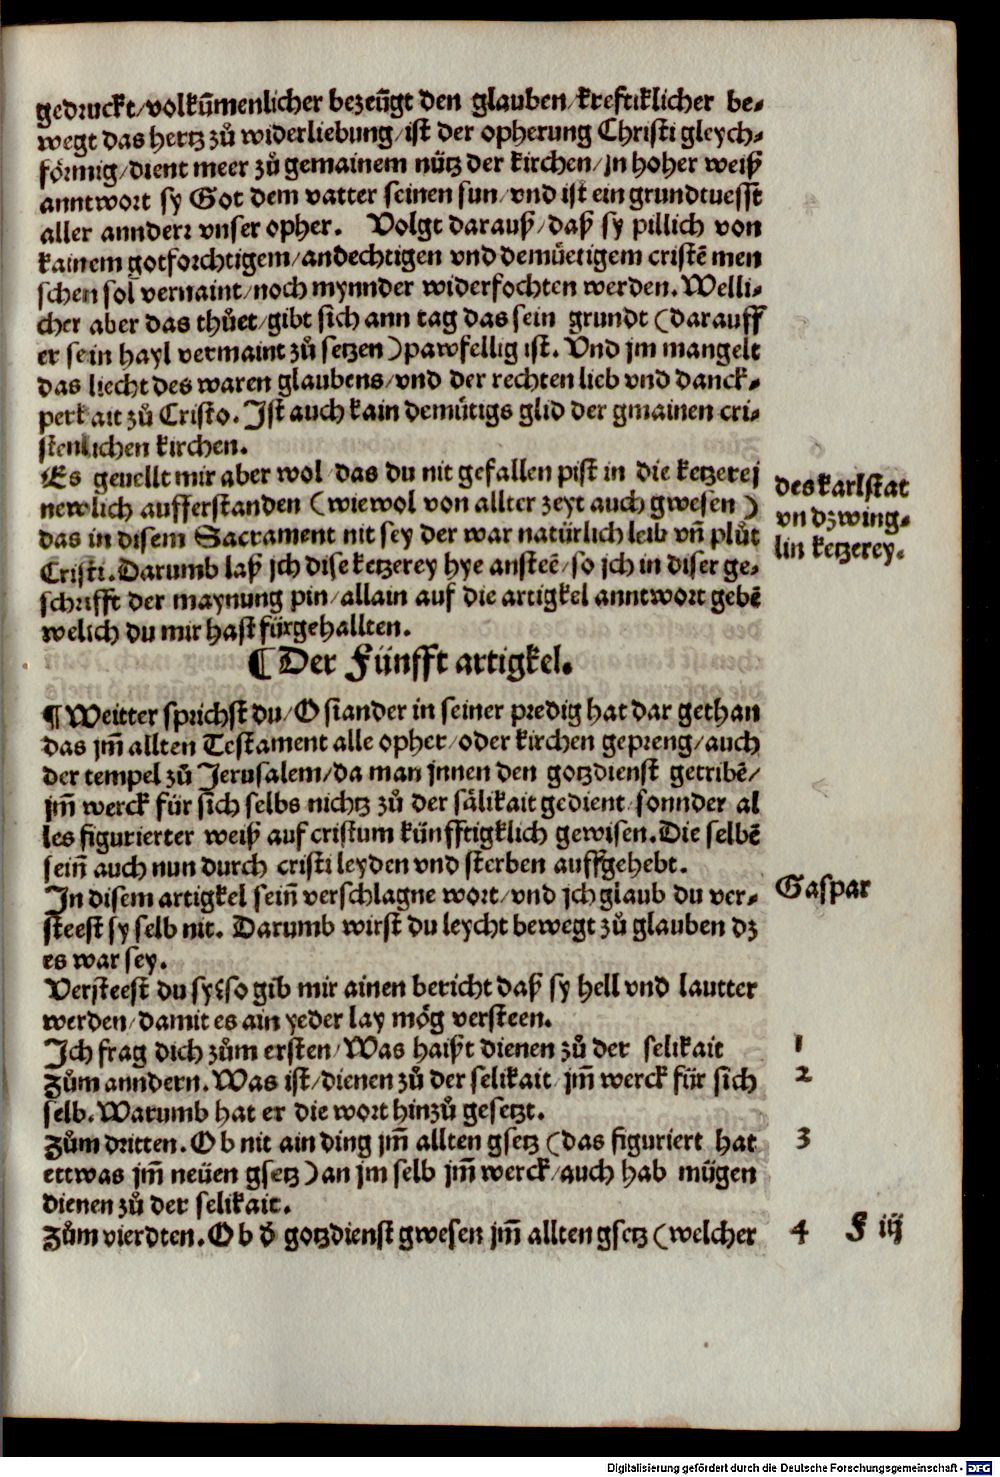 gedruckt/volkūmenlicher bezeügt den glauben/kreftiklicher be-
wegt das hertz zů widerliebung/ist der opherung Christi gleych-
förmig/dient meer zů gemainem nütz der kirchen/jn hoher weiß
anntwort sy Got dem vatter seinen sun/vnd ist ein grundtuesst
aller annderr vnser opher. Volgt darauß/daß sy pillich von
kainem gotforchtigem/andechtigen vnd demüetigem cristē men
schen sol vernaint/noch mynnder widerfochten werden. Welli-
cher aber das thůet/gibt sich ann tag das sein grundt (darauff
er sein hayl vermaint zů setzen) pawfellig ist. Vnd jm mangelt
das liecht des waren glaubens/vnd der rechten lieb vnd danck-
perkait zů Cristo. Ist auch kain demütigs glid der gmainen cri-
stenlichen kirchen.
Es geuellt mir aber wol das du nit gefallen pist in die ketzerej
newlich aufferstanden (wiewol von allter zeyt auch gwesen)
das in disem Sacrament nit sey der war natürlich leib vn̄ plůt
Cristi. Darumb laß jch dise ketzerey hye ansteē/so jch in diser ge-
schrifft der maynung pin/allain auf die artigkel anntwort gebē
welich du mir hast fürgehallten.
des karlstat
vn dzwing-
lin ketzerey.
¶ Der Fünfft artigkel.
¶ Weitter sprichst du/Osiander in seiner predig hat dar gethan
das jm̄ allten Testament alle opher/oder kirchen gepreng/auch
der tempel zů Jerusalem/da man jnnen den gotzdienst getribē/
jm̄ werck für sich selbs nichtz zů der sälikait gedient/sonnder al
les figurierter weiß auf cristum künfftigklich gewisen. Die selbē
sein̄ auch nun durch cristi leyden vnd sterben auffgehebt.
In disem artigkel sein̄ verschlagne wort/vnd jch glaub du ver-
steest sy selb nit. Darumb wirst du leycht bewegt zů glauben dz
es war sey.
Gaspar
Versteest du sy? so gib mir ainen bericht daß sy hell vnd lautter
werden/damit es ain yeder lay mög versteen.
Ich frag dich zům ersten/Was haißt dienen zů der selikait 1
Zům anndern. Was ist/dienen zů der selikait/jm̄ werck für sich 2
selb. Warumb hat er die wort hinzů gesetzt.
Zům dritten. Ob nit ain ding jm̄ allten gsetz (das figuriert hat 3
ettwas jm̄ neüen gsetz) an jm selb jm̄ werck/auch hab mügen
dienen zů der selikait.
Zům vierdten. Ob d̄ gotzdienst gwesen jm̄ allten gsetz (welcher 4
F iij
Digitalisierung gefördert durch die Deutsche Forschungsgemeinschaft - DFG